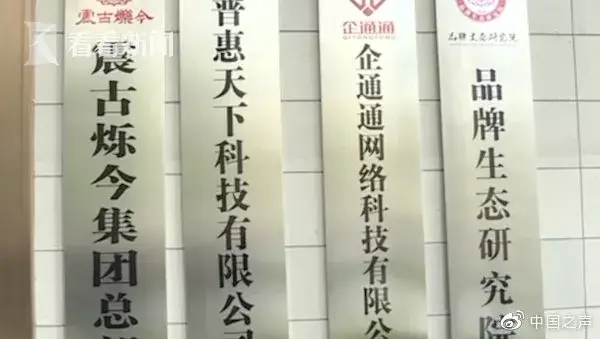 看看新闻
震古烁今
震古烁今集团总部
普惠天下科技有限公司
企通通
QITONGTONG
企通通网络科技有限公
品牌生态研究院
品牌生态研究院
@中国之声